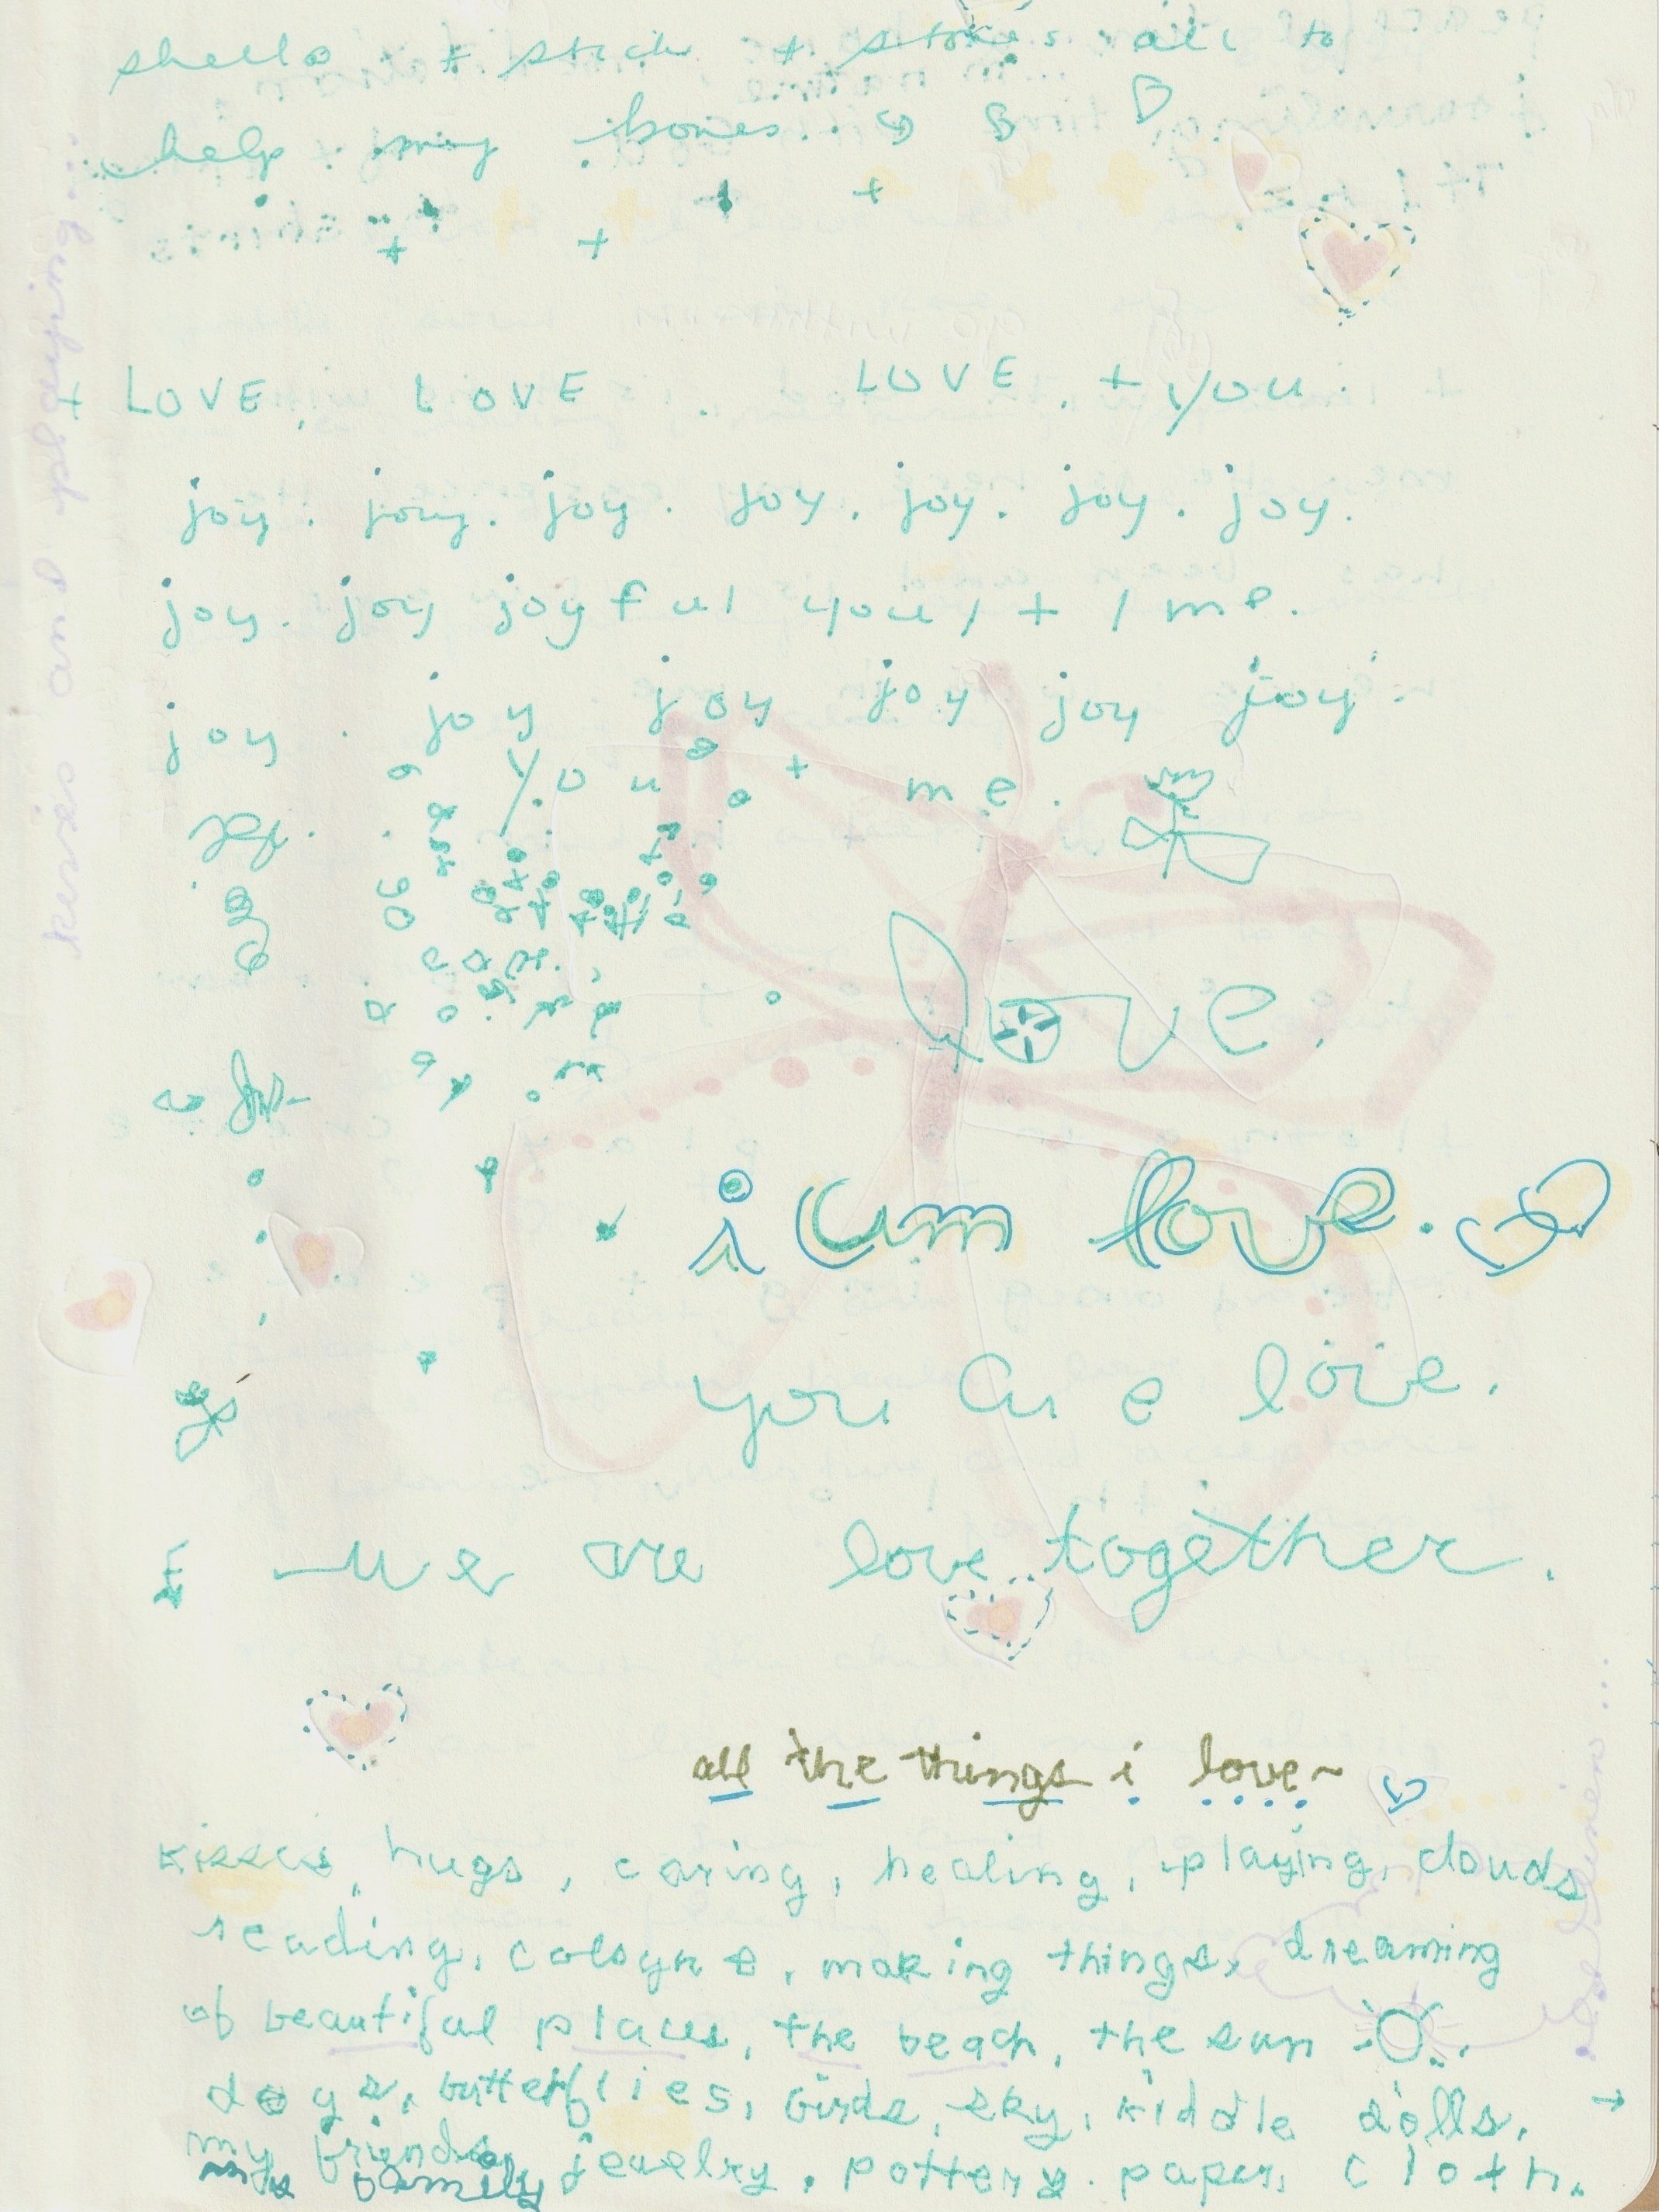 shells + stick + stones all to
help my bones.
+ LOVE, LOVE. LOVE, + you.
joy. joy. joy. joy. joy. joy. joy.
joy. joy joyful you, + / me.
joy. joy joy joy joy joy.
you + me.
love.
i am love.
you are love.
we are love together.
all the things i love ~
kisses, hugs, caring, healing, playing, clouds
reading, colours, making things, dreaming
of beautiful places, the beach, the sun
dogs, butterflies, birds, sky, kiddle dolls, →
my friends, jewelry, pottery. paper, cloth.
my family
kisses and playing...